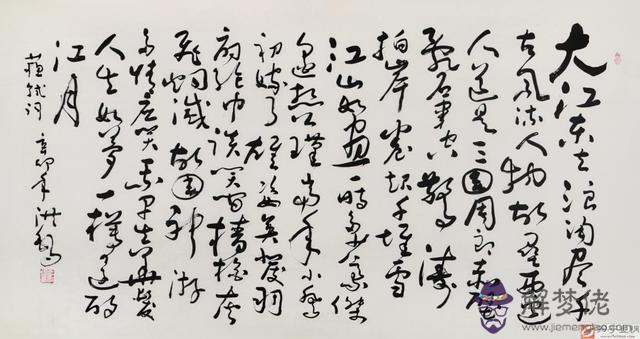 大江东去浪淘尽千
古风流人物故垒西边
人道是三国周郎赤壁
乱石穿空驚濤
拍岸卷起千堆雪
江山如画一时多少豪傑
遥想公瑾当年小乔
初嫁了雄姿英发羽
扇纶巾谈笑间樯橹灰
飞烟灭故国神游
多情应笑我早生华髮
人生如梦一樽还酹
江月
蘇軾詞 辛卯年 洪
解梦佬
www.jiemenglao.com